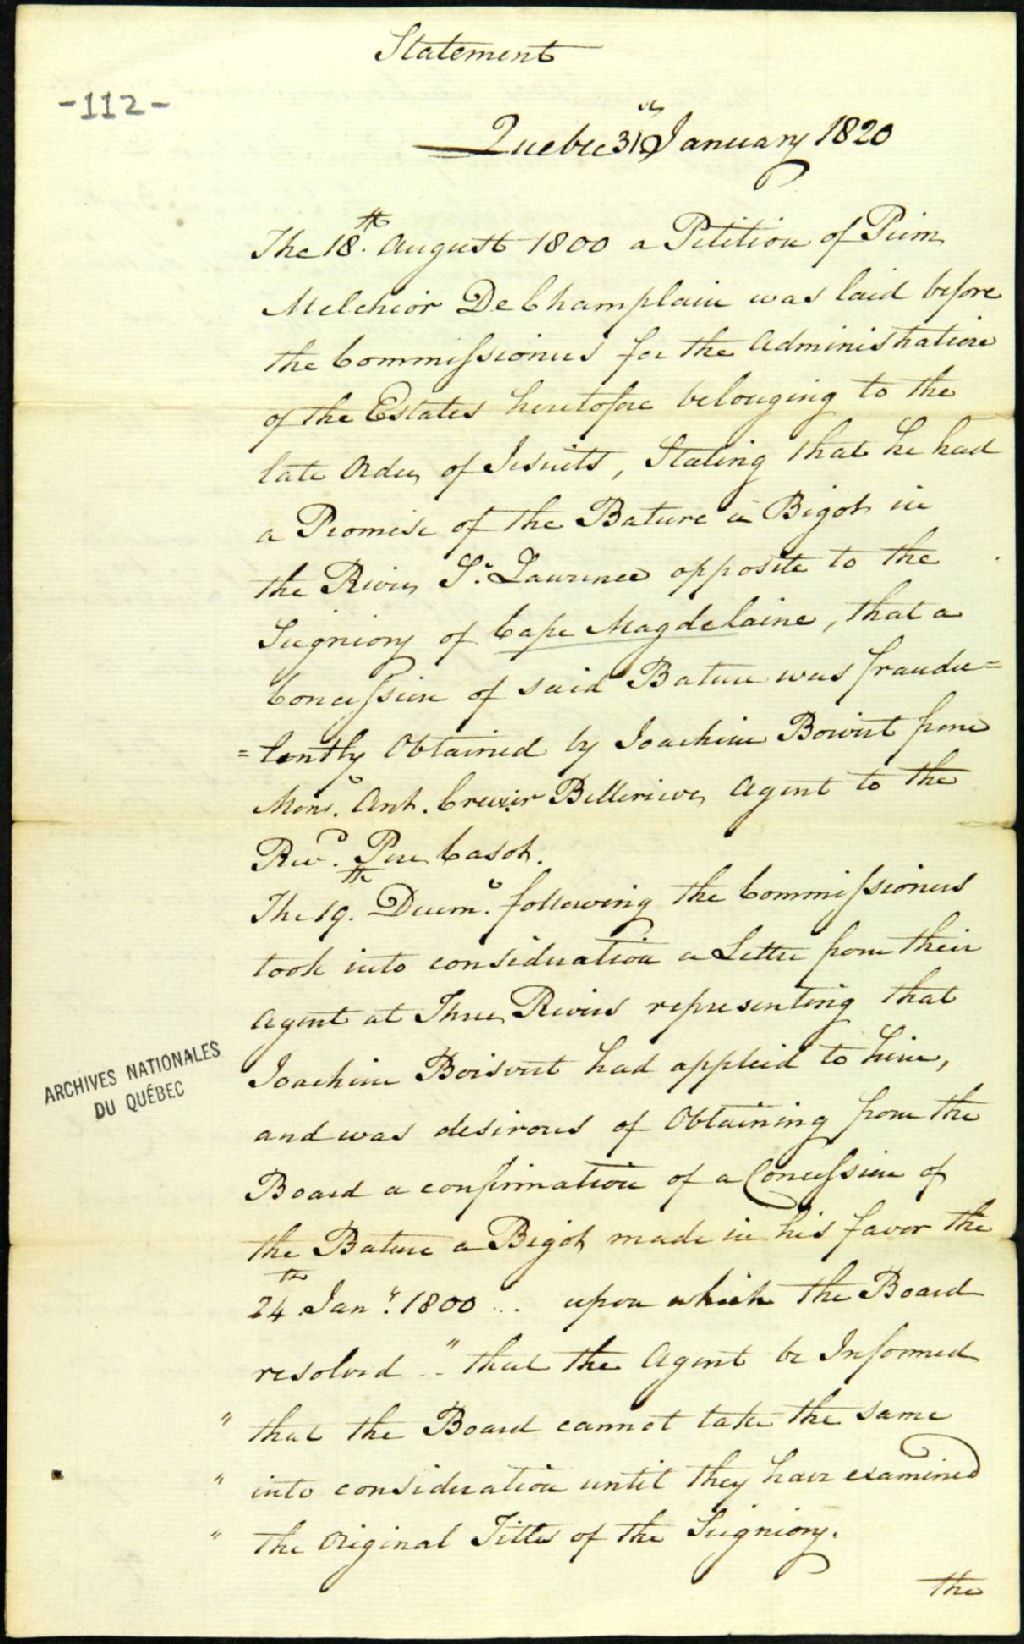 Statement
-112-
Quebec 31st January 1820
The 18th. August 1800 a Petition of Pierre
Melchior DeChamplain was laid before
the Commissioners for the Administration
of the Estates heretofore belonging to the
late Order of Jesuits, Stating that he had
a Promise of the Bature a Bigot in
the River St. Lawrence opposite to the
Seigniory of Cape Magdelaine, that a
Concession of said Bature was fraudu=
=lently Obtained by Joachim Boivert from
Monsr. Ant. Crevier Bellerive, Agent to the
Revd. Pere Casot.
The 19th. Decemr. following the Commissioners
took into consideration a Letter from their
Agent at Three Rivers representing that
Joachim Boisvert had applied to him,
and was desirous of Obtaining from the
Board a confirmation of a Concession of
the Bature a Bigot made in his favor the
24th Jany. 1800 ... upon which the Board
resolved .. " that the Agent be Informed
" that the Board cannot take the same
" into consideration until they have examined
" the Original Titles of the Seigniory.
the
ARCHIVES NATIONALES
DU QUÉBEC